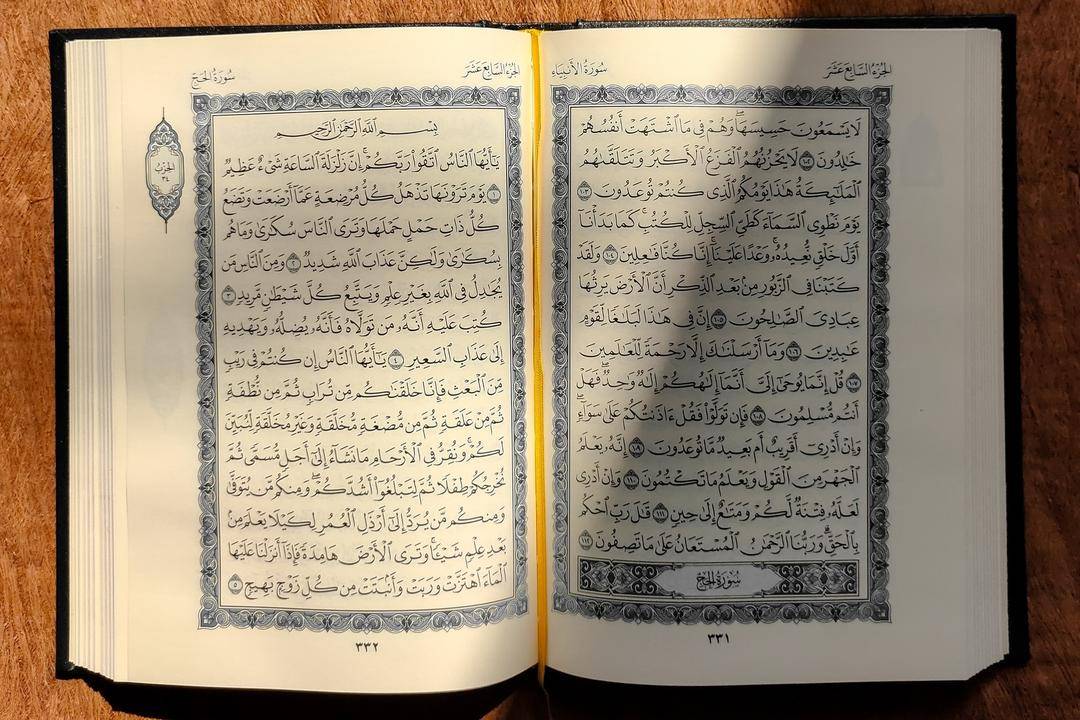 الجزء السابع عشر
سورة الأنبياء
لَا يَسْمَعُونَ حَسِيسَهَا ۖ وَهُمْ فِي مَا اشْتَهَتْ أَنفُسُهُمْ
خَالِدُونَ ١٠٢ لَا يَحْزُنُهُمُ الْفَزَعُ الْأَكْبَرُ وَتَتَلَقَّاهُمُ
الْمَلَائِكَةُ هَٰذَا يَوْمُكُمُ الَّذِي كُنتُمْ تُوعَدُونَ ١٠٣
يَوْمَ نَطْوِي السَّمَاءَ كَطَيِّ السِّجِلِّ لِلْكُتُبِ ۚ كَمَا بَدَأْنَا
أَوَّلَ خَلْقٍ نُّعِيدُهُ ۚ وَعْدًا عَلَيْنَا ۚ إِنَّا كُنَّا فَاعِلِينَ ١٠٤ وَلَقَدْ
كَتَبْنَا فِي الزَّبُورِ مِن بَعْدِ الذِّكْرِ أَنَّ الْأَرْضَ يَرِثُهَا
عِبَادِيَ الصَّالِحُونَ ١٠٥ إِنَّ فِي هَٰذَا لَبَلَاغًا لِّقَوْمٍ
عَابِدِينَ ١٠٦ وَمَا أَرْسَلْنَاكَ إِلَّا رَحْمَةً لِّلْعَالَمِينَ
١٠٧ قُلْ إِنَّمَا يُوحَىٰ إِلَيَّ أَنَّمَا إِلَٰهُكُمْ إِلَٰهٌ وَاحِدٌ ۖ فَهَلْ
أَنتُم مُّسْلِمُونَ ١٠٨ فَإِن تَوَلَّوْا فَقُلْ آذَنتُكُمْ عَلَىٰ سَوَاءٍ ۖ
وَإِنْ أَدْرِي أَقَرِيبٌ أَم بَعِيدٌ مَّا تُوعَدُونَ ١٠٩ إِنَّهُ يَعْلَمُ
الْجَهْرَ مِنَ الْقَوْلِ وَيَعْلَمُ مَا تَكْتُمُونَ ١١٠ وَإِنْ أَدْرِي
لَعَلَّهُ فِتْنَةٌ لَّكُمْ وَمَتَاعٌ إِلَىٰ حِينٍ ١١١ قَالَ رَبِّ احْكُم
بِالْحَقِّ ۗ وَرَبُّنَا الرَّحْمَٰنُ الْمُسْتَعَانُ عَلَىٰ مَا تَصِفُونَ ١١٢
سورة الحج
٣٣١
الجزء السابع عشر
سورة الحج
بِسْمِ اللَّهِ الرَّحْمَٰنِ الرَّحِيمِ
يَا أَيُّهَا النَّاسُ اتَّقُوا رَبَّكُمْ ۚ إِنَّ زَلْزَلَةَ السَّاعَةِ شَيْءٌ عَظِيمٌ
١ يَوْمَ تَرَوْنَهَا تَذْهَلُ كُلُّ مُرْضِعَةٍ عَمَّا أَرْضَعَتْ وَتَضَعُ
كُلُّ ذَاتِ حَمْلٍ حَمْلَهَا وَتَرَى النَّاسَ سُكَارَىٰ وَمَا هُم
بِسُكَارَىٰ وَلَٰكِنَّ عَذَابَ اللَّهِ شَدِيدٌ ٢ وَمِنَ النَّاسِ مَن
يُجَادِلُ فِي اللَّهِ بِغَيْرِ عِلْمٍ وَيَتَّبِعُ كُلَّ شَيْطَانٍ مَّرِيدٍ ٣
كُتِبَ عَلَيْهِ أَنَّهُ مَن تَوَلَّاهُ فَأَنَّهُ يُضِلُّهُ وَيَهْدِيهِ
إِلَىٰ عَذَابِ السَّعِيرِ ٤ يَا أَيُّهَا النَّاسُ إِن كُنتُمْ فِي رَيْبٍ
مِّنَ الْبَعْثِ فَإِنَّا خَلَقْنَاكُم مِّن تُرَابٍ ثُمَّ مِن نُّطْفَةٍ
ثُمَّ مِنْ عَلَقَةٍ ثُمَّ مِن مُّضْغَةٍ مُّخَلَّقَةٍ وَغَيْرِ مُخَلَّقَةٍ لِّنُبَيِّنَ
لَكُمْ ۚ وَنُقِرُّ فِي الْأَرْحَامِ مَا نَشَاءُ إِلَىٰ أَجَلٍ مُّسَمًّى ثُمَّ
نُخْرِجُكُمْ طِفْلًا ثُمَّ لِتَبْلُغُوا أَشُدَّكُمْ ۖ وَمِنكُم مَّن يُتَوَفَّىٰ
وَمِنكُم مَّن يُرَدُّ إِلَىٰ أَرْذَلِ الْعُمُرِ لِكَيْلَا يَعْلَمَ مِن
بَعْدِ عِلْمٍ شَيْئًا ۚ وَتَرَى الْأَرْضَ هَامِدَةً فَإِذَا أَنزَلْنَا عَلَيْهَا
الْمَاءَ اهْتَزَّتْ وَرَبَتْ وَأَنبَتَتْ مِن كُلِّ زَوْجٍ بَهِيجٍ ٥
الحزب
٣٤
٣٣٢